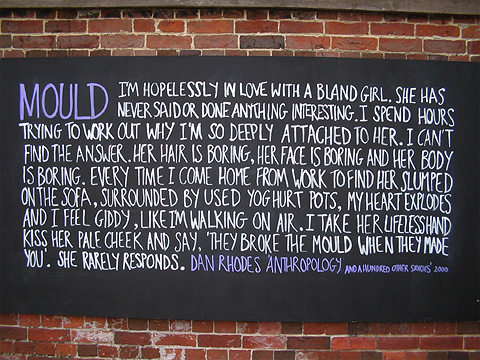 MOULD I'M HOPELESSLY IN LOVE WITH A BLAND GIRL. SHE HAS
NEVER SAID OR DONE ANYTHING INTERESTING. I SPEND HOURS
TRYING TO WORK OUT WHY I'M SO DEEPLY ATTACHED TO HER. I CAN'T
FIND THE ANSWER. HER HAIR IS BORING, HER FACE IS BORING AND HER BODY
IS BORING. EVERY TIME I COME HOME FROM WORK TO FIND HER SLUMPED
ON THE SOFA, SURROUNDED BY USED YOGHURT POTS, MY HEART EXPLODES
AND I FEEL GIDDY, LIKE I'M WALKING ON AIR. I TAKE HER LIFELESS HAND
KISS HER PALE CHEEK AND SAY, 'THEY BROKE THE MOULD WHEN THEY MADE
YOU'. SHE RARELY RESPONDS. DAN RHODES 'ANTHROPOLOGY AND A HUNDRED OTHER STORIES' 2000